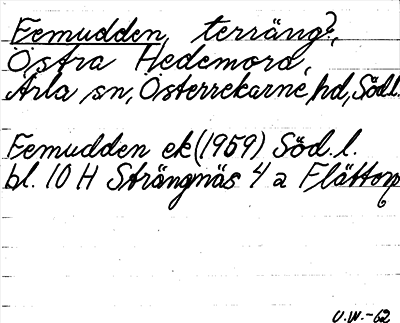 Femudden, terräng?,
Östra Hedemora,
Ärla sn, Österrekarne hd, Södl.
Femudden ek (1959) Söd. l.
bl. 10 H Strängnäs 4 a Flättorp
U.W.-62